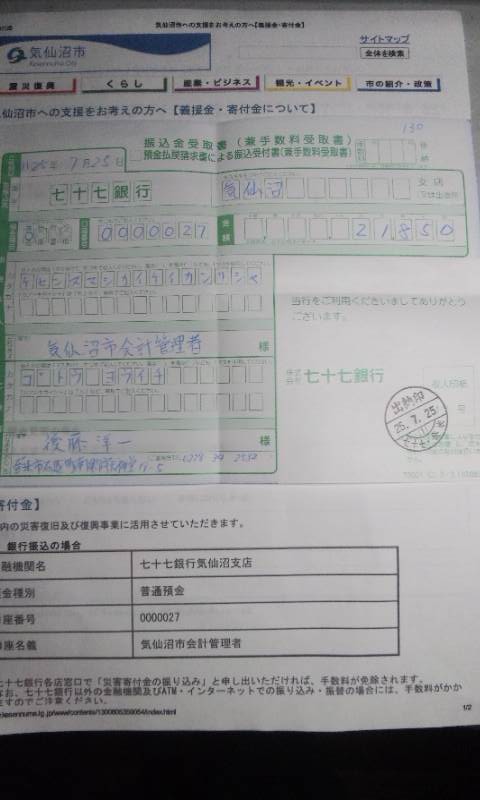 気仙沼市への支援をお考えの方へ【義援金・寄付金】
気仙沼市
Kesennuma City
サイトマップ
全体を検索
震災復興
くらし
産業・ビジネス
観光・イベント
市の紹介・政策
仙沼市への支援をお考えの方へ【義援金・寄付金について】
130
振込金受取書(兼手数料受取書)
預金払戻請求書による振込受付書(兼手数料受取書)
25年7月25日
七十七銀行
気仙沼
支店
0000027
金額
21850
ケセンヌマシカイケイカンリシャ
気仙沼市会計管理者
様
ゴトウ ヨウイチ
後藤洋一
様
当行をご利用くださいましてありがとう
ございます。
株式会社 七十七銀行
収入印紙
出納印
25.7.25
寄付金】
内の災害復旧及び復興事業に活用させていただきます。
銀行振込の場合
融機関名
七十七銀行気仙沼支店
金種別
普通預金
座番号
0000027
座名義
気仙沼市会計管理者
七十七銀行各店窓口で「災害寄付金の振り込み」と申し出いただければ、手数料が免除されます。
なお、七十七銀行以外の金融機関及びATM・インターネットでの振り込み・振替の場合には、手数料がかか
ますのでご注意ください。
1/2